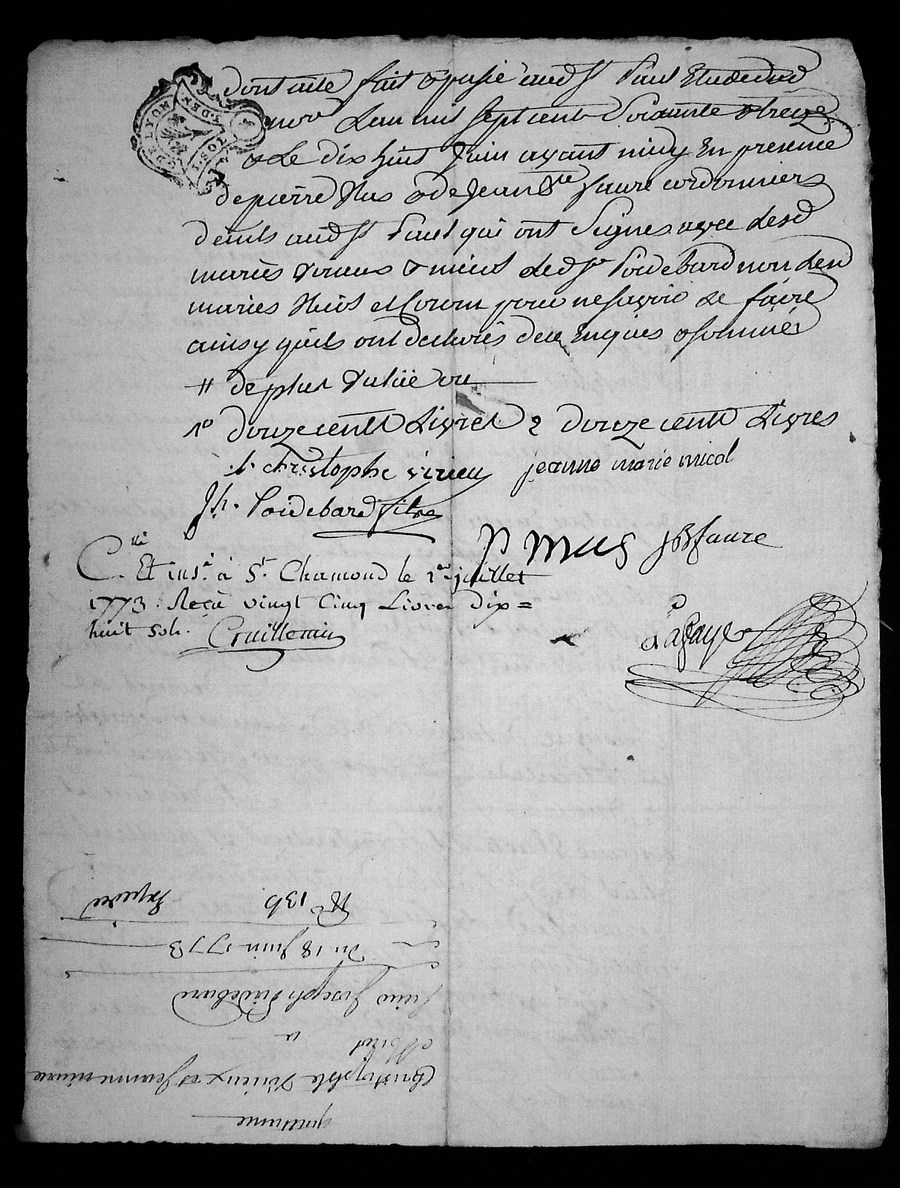 GDE LYON
dont acte fait & passé aud St Paul Etude dud
nore Lan mil sept cent Soixante & treize
& Le dix huit Juin ayant midy En présence
de pierre Mus & de Jean Bte faure cordonniers
de aud St Paul qui ont Signés avec lesd
mariés Virieux & micol Led sr Poidebard non lesd
mariés pour ne sçavoir Le faire
ainsy qu'ils ont déclarés de ce Enquis & sommés
# de plus Valüe ou
1° douze cents Livres 2 douze cents Livres
christophe virieu jeanne marie micol
Jh. Poidebard fils
p mus JB faure
C.lé Et ins.é à St. Chamond le 1er juillet
1773. Reçû vingt Cinq Livres dix=
huit sols.
Lafaye
quittance
Christophle Virieux et Jeanne marie
Micol
a
Sieur Joseph Poidebard
Du 18 Juin 1773
N° 136. Expédié